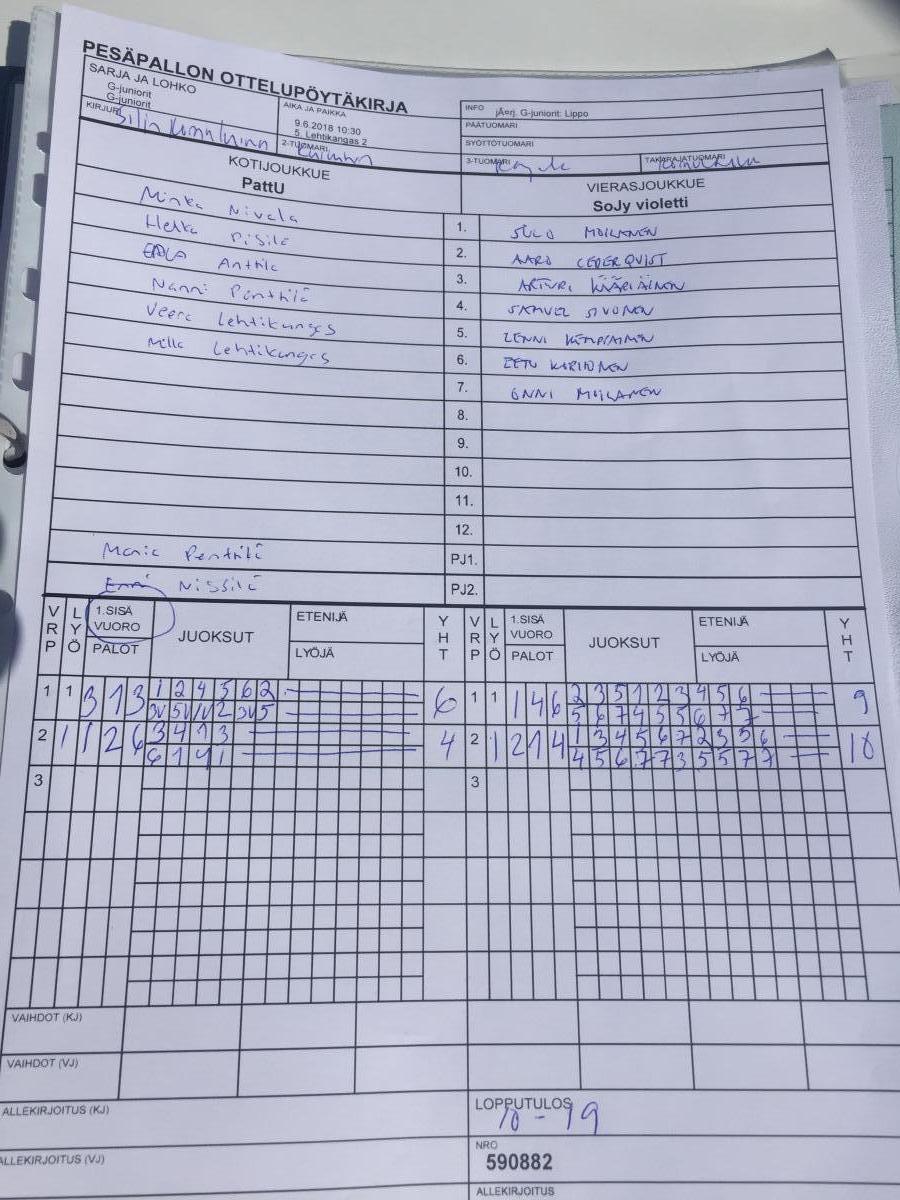 PESÄPALLON OTTELUPÖYTÄKIRJA
SARJA JA LOHKO
G-juniorit
G-juniorit
AIKA JA PAIKKA
9.6.2018 10:30
5. Lehtikangas 2
INFO jÄerj. G-juniorit: Lippo
PÄÄTUOMARI
SYÖTTÖTUOMARI
KIRJURI
2-TUOMARI
3-TUOMARI
TAKARAJATUOMARI
KOTIJOUKKUE
PattU
VIERASJOUKKUE
SoJy violetti
Minka Nivala 1. SULO MOILANEN
Helka Pisilä 2. AARO CEDERQVIST
EEDLA Anttila 3. ARTTURI KÄÄRIÄINEN
Nanni Penttilä 4. SAMUEL SIVONEN
Veera Lehtikangas 5. LENNI
Milla Lehtikangas 6. EETU KARHUNEN
7. ONNI MOILANEN
8.
9.
10.
11.
12.
Maria Penttilä PJ1.
Emmi Nissilä PJ2.
VRP LYÖ 1.SISÄ VUORO PALOT JUOKSUT ETENIJÄ LYÖJÄ YHT VRP LYÖ 1.SISÄ VUORO PALOT JUOKSUT ETENIJÄ LYÖJÄ YHT
1 1 3 1 3 1 2 4 5 6 2 6 1 1 1 4 6 2 3 5 1 2 3 4 5 6 9
3V 5V 1V 2 3V 5 5 6 7 4 5 5 6 7 7
2 1 1 2 6 3 4 1 3 4 2 1 2 1 4 1 3 4 5 6 7 2 3 5 6 10
6 1 4 1 4 5 6 7 7 3 5 5 7 7
3 3
VAIHDOT (KJ)
VAIHDOT (VJ)
ALLEKIRJOITUS (KJ)
LOPPUTULOS
10 - 19
ALLEKIRJOITUS (VJ)
NRO
590882
ALLEKIRJOITUS